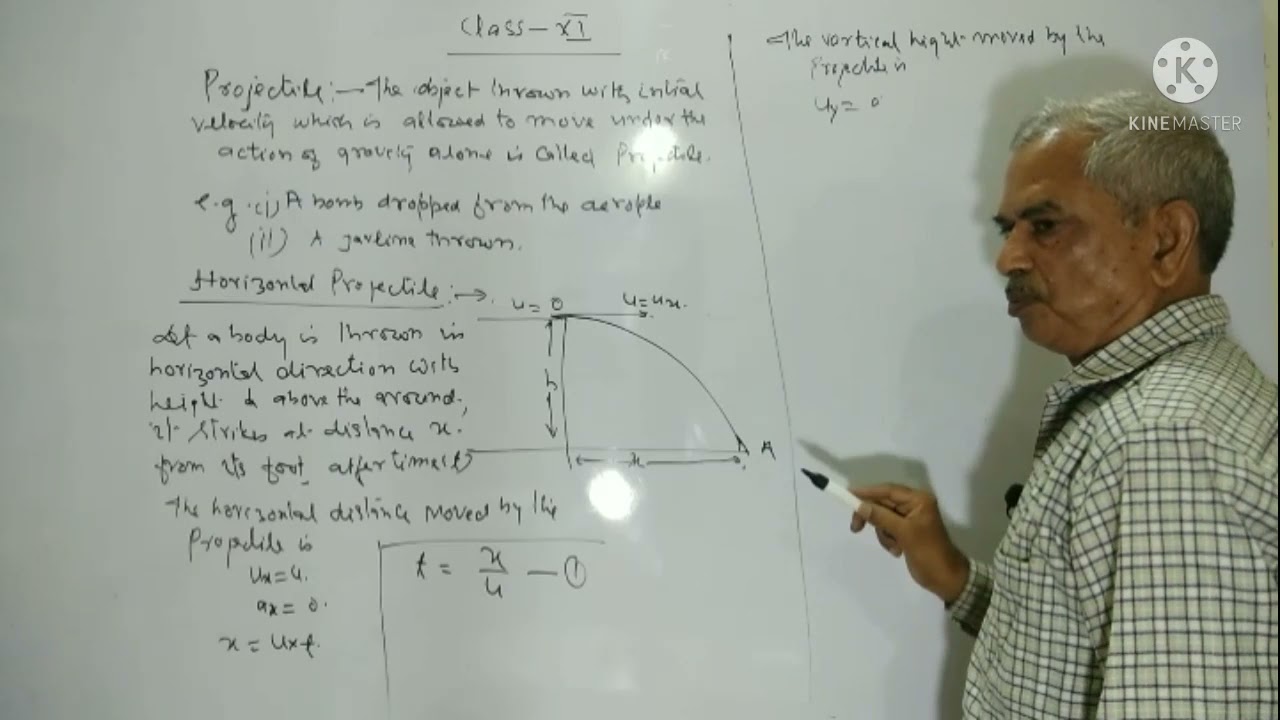 Class - XI
Projectile:- The object thrown with initial
velocity which is allowed to move under the
action of gravity alone is called Projectile.
e.g. (i) A bomb dropped from the aerople
(ii) A javline thrown.
Horizontal Projectile:→
u= 0 u=ux.
Let a body is thrown in
horizontal direction with
height h above the ground,
it strikes at distance x.
from its foot after time t
h
x
A
The horizontal distance moved by the
Projectile is
ux=u.
ax= 0.
x = u×t.
t = x/u - ①
The vertical height moved by the
Projectile is
uy= 0
K
KINEMASTER